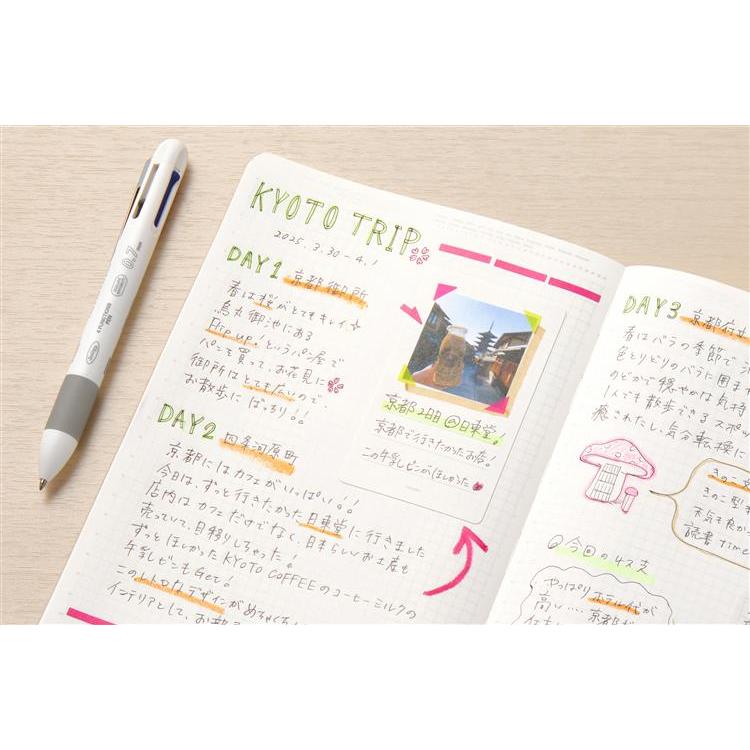 KYOTO TRIP
2025.3.30-4.1
DAY1 京都御所
春は桜がとてもキレイ☆
烏丸御池にある
Flip up! というパン屋で
パンを買って、お花見に
御所はとても広いので、
お散歩にぴったり!!
DAY2 四条河原町
京都にはカフェがいっぱい!!
今日は、ずっと行きたかった日東堂に行きました
店内はカフェだけでなく、日本らしいお土産も
売っていて、目移りしちゃった!
ずっとほしかったKYOTO COFFEEのコーヒーミルクの
牛乳ビンもGet!
このレトロなデザインがめちゃくち
インテリアとして、お部
京都2日目@日東堂!
京都で行きたかったお店!
この牛乳ビンがほしかった
DAY3 京都府立
春はバラの季節で
色とりどりのバラに囲ま
のどかで穏やかな気持
1人でも散歩できるスポッ
癒されたし、気分転換に
きのこ
きのこ型
天気も良か
読書time
今回の
やっぱりホテル代が
高い…京都だ
0.7
4 FUNCTIONS
PEN